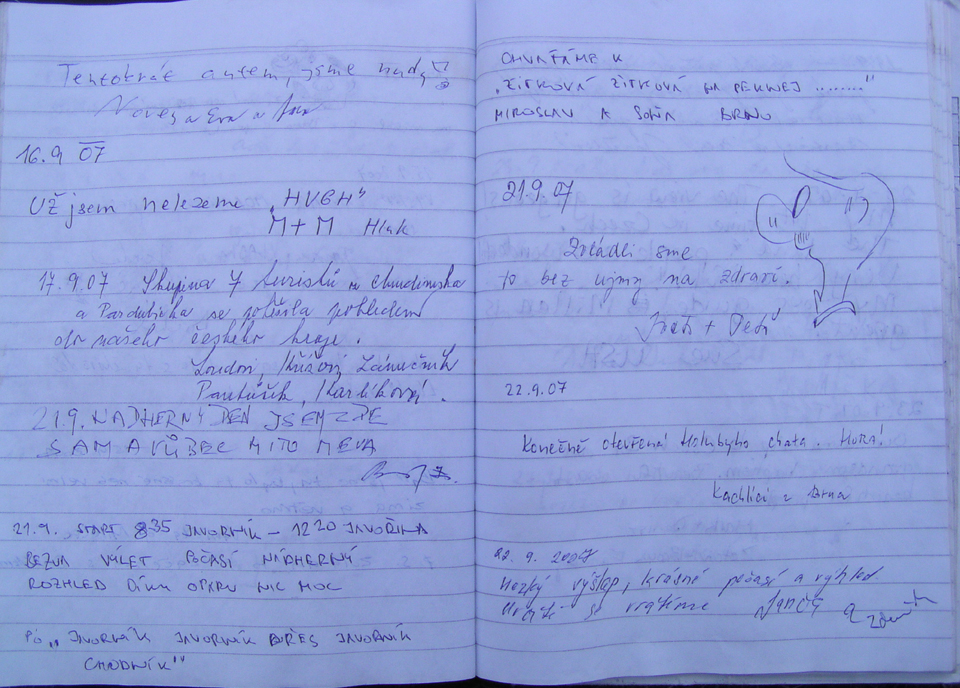 Tentokrát autem, jsme tady
a Eva a
16.9 07
Už jsem nelezeme „HVGH“
M+M Hluk
17.9.07 Skupina 7 turistů z Chrudimska
a Pardubicka se potěšila pohledem
do našeho českého kraje.
Loudov, Křížová, Zámečník
Pantůšek, Karlíková.
21.9. NÁDHERNÝ DEN JSEM ZDE
SAM A VŮBEC MI TO NEVA
21.9. START 8 35 JAVORNÍK – 12 20 JAVOŘINA
VÝLET POČASÍ NÁDHERNÝ
ROZHLED DÍKY OPARU NIC MOC
PO „JAVORNÍK JAVORNÍK PŘES JAVORNÍK
CHODNÍK“
CHVÁTÁME K
„ŽÍTKOVÁ ŽÍTKOVÁ NA PEKNEJ ........“
MIROSLAV A SOŇA BRNO
21.9.07
Zvládli sme
to bez ujmy na zdraví.
+
22.9.07
Konečně otevřená Holubyho chata. Hurá!
Kachlíci z Brna
22. 9. 2007
Hezký výšlap, krásné počasí a výhled
Určitě se vrátíme Janča a Zdeněk